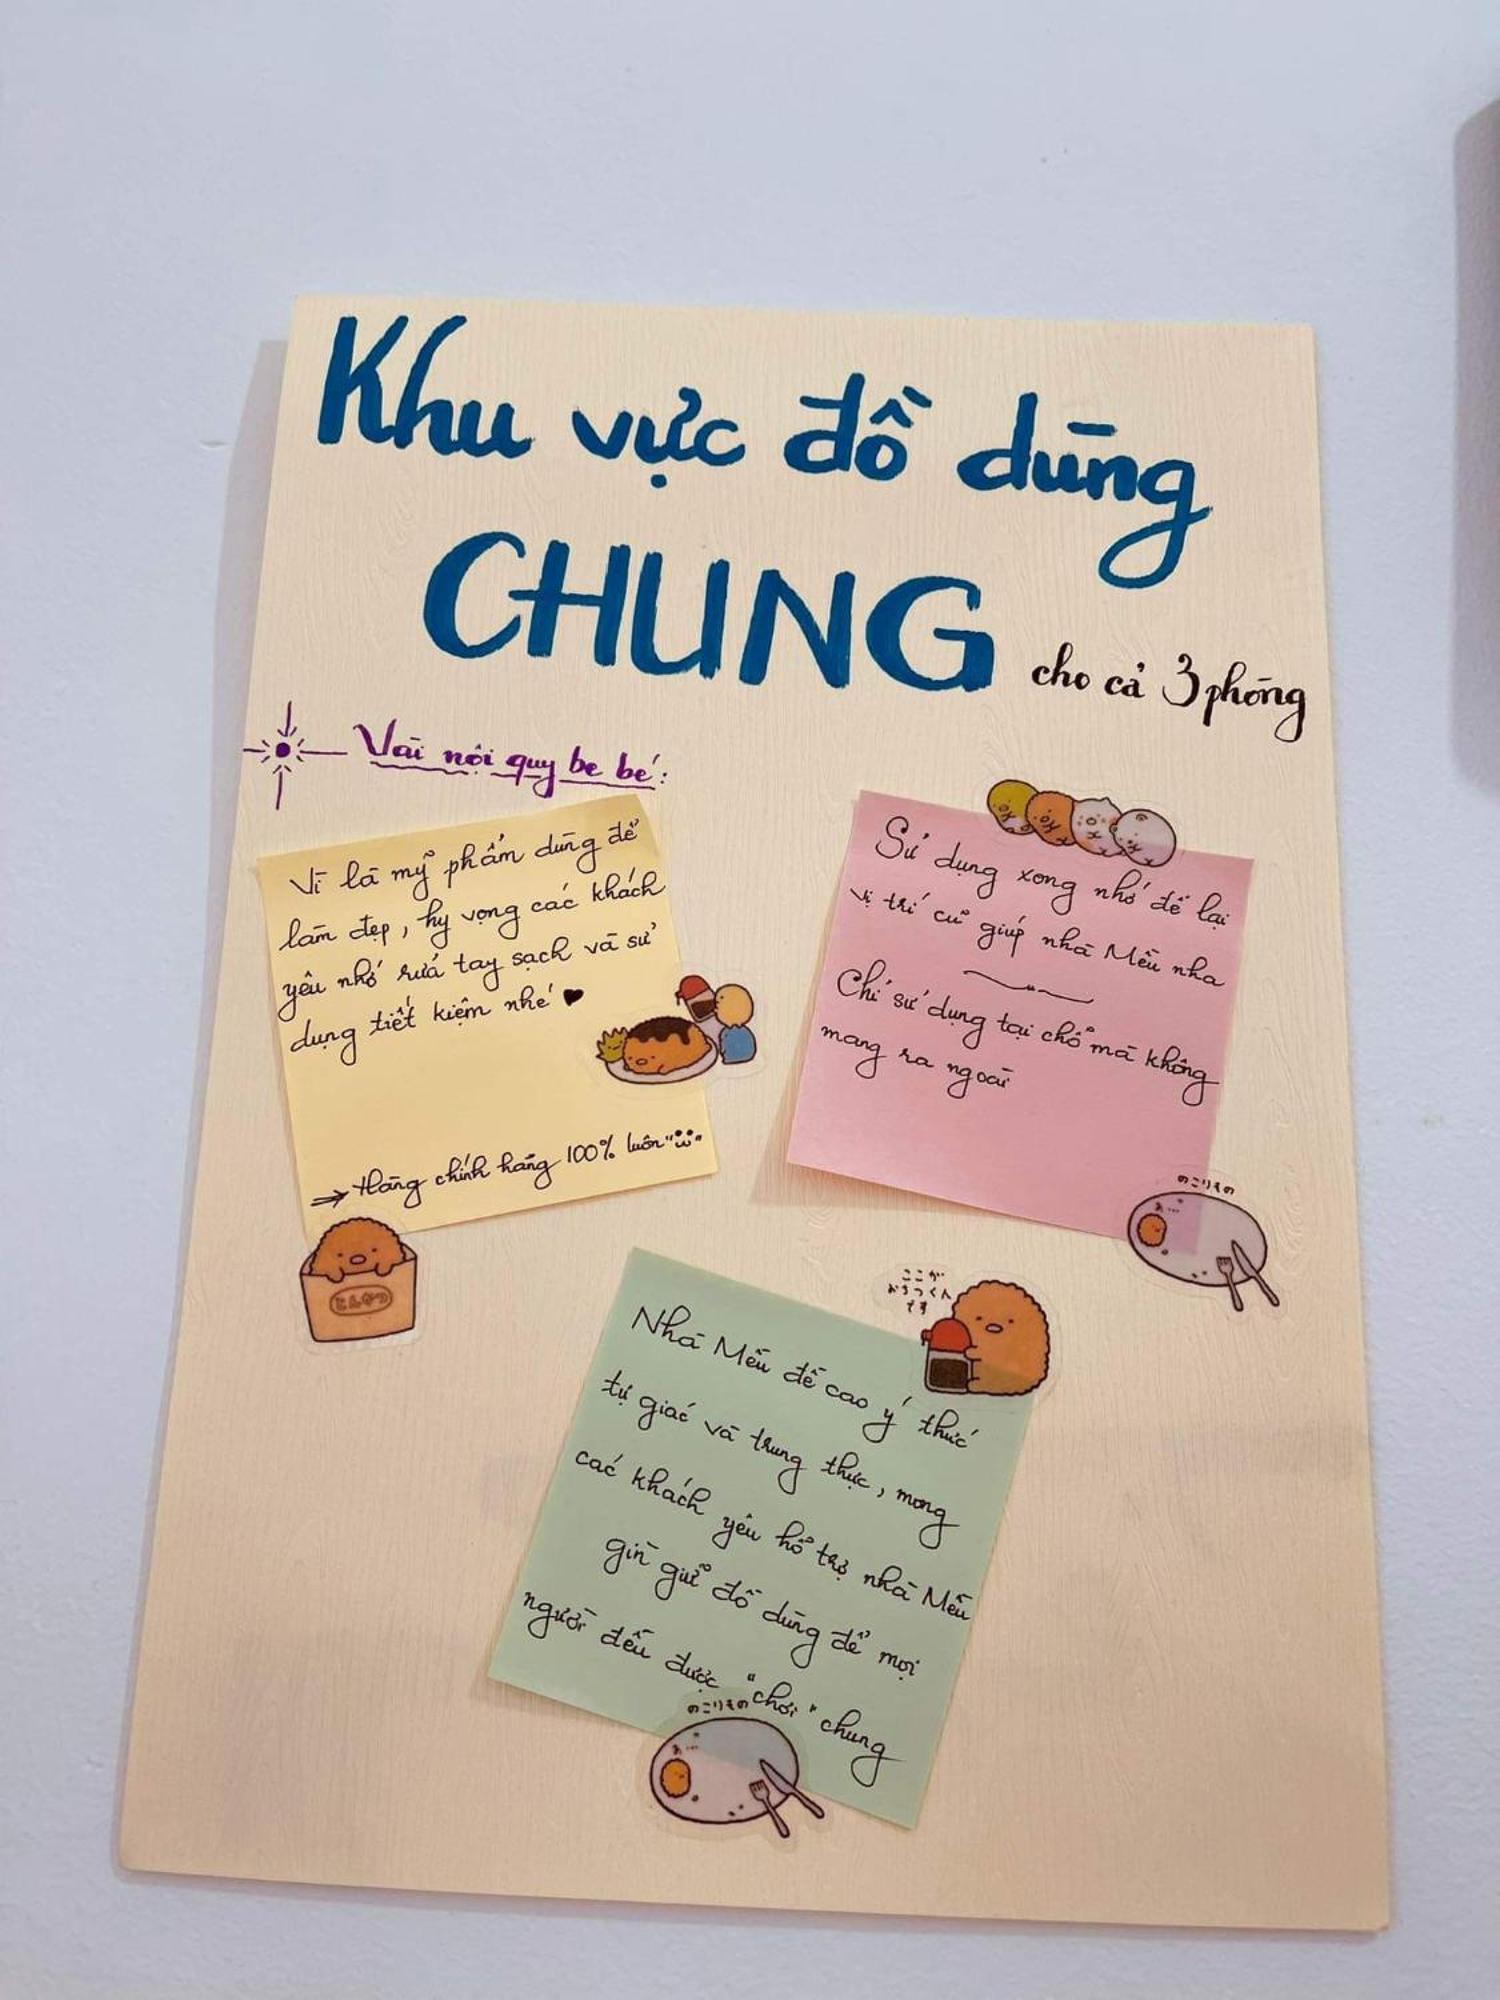 Khu vực đồ dùng
CHUNG cho cả 3 phòng
Vài nội quy be bé:
Vì là mỹ phẩm dùng để
làm đẹp, hy vọng các khách
yêu nhớ rửa tay sạch và sử
dụng tiết kiệm nhé ♥
⇒ Hàng chính hãng 100% luôn
Sử dụng xong nhớ để lại
vị trí cũ giúp nhà Mều nha
Chỉ sử dụng tại chỗ mà không
mang ra ngoài
のこりもの
あ...
とんかつ
ここが
おちつくん
です
Nhà Mều đề cao ý thức
tự giác và trung thực, mong
các khách yêu hỗ trợ nhà Mều
gìn giữ đồ dùng để mọi
người đều được "chơi" chung
のこりもの
あ...